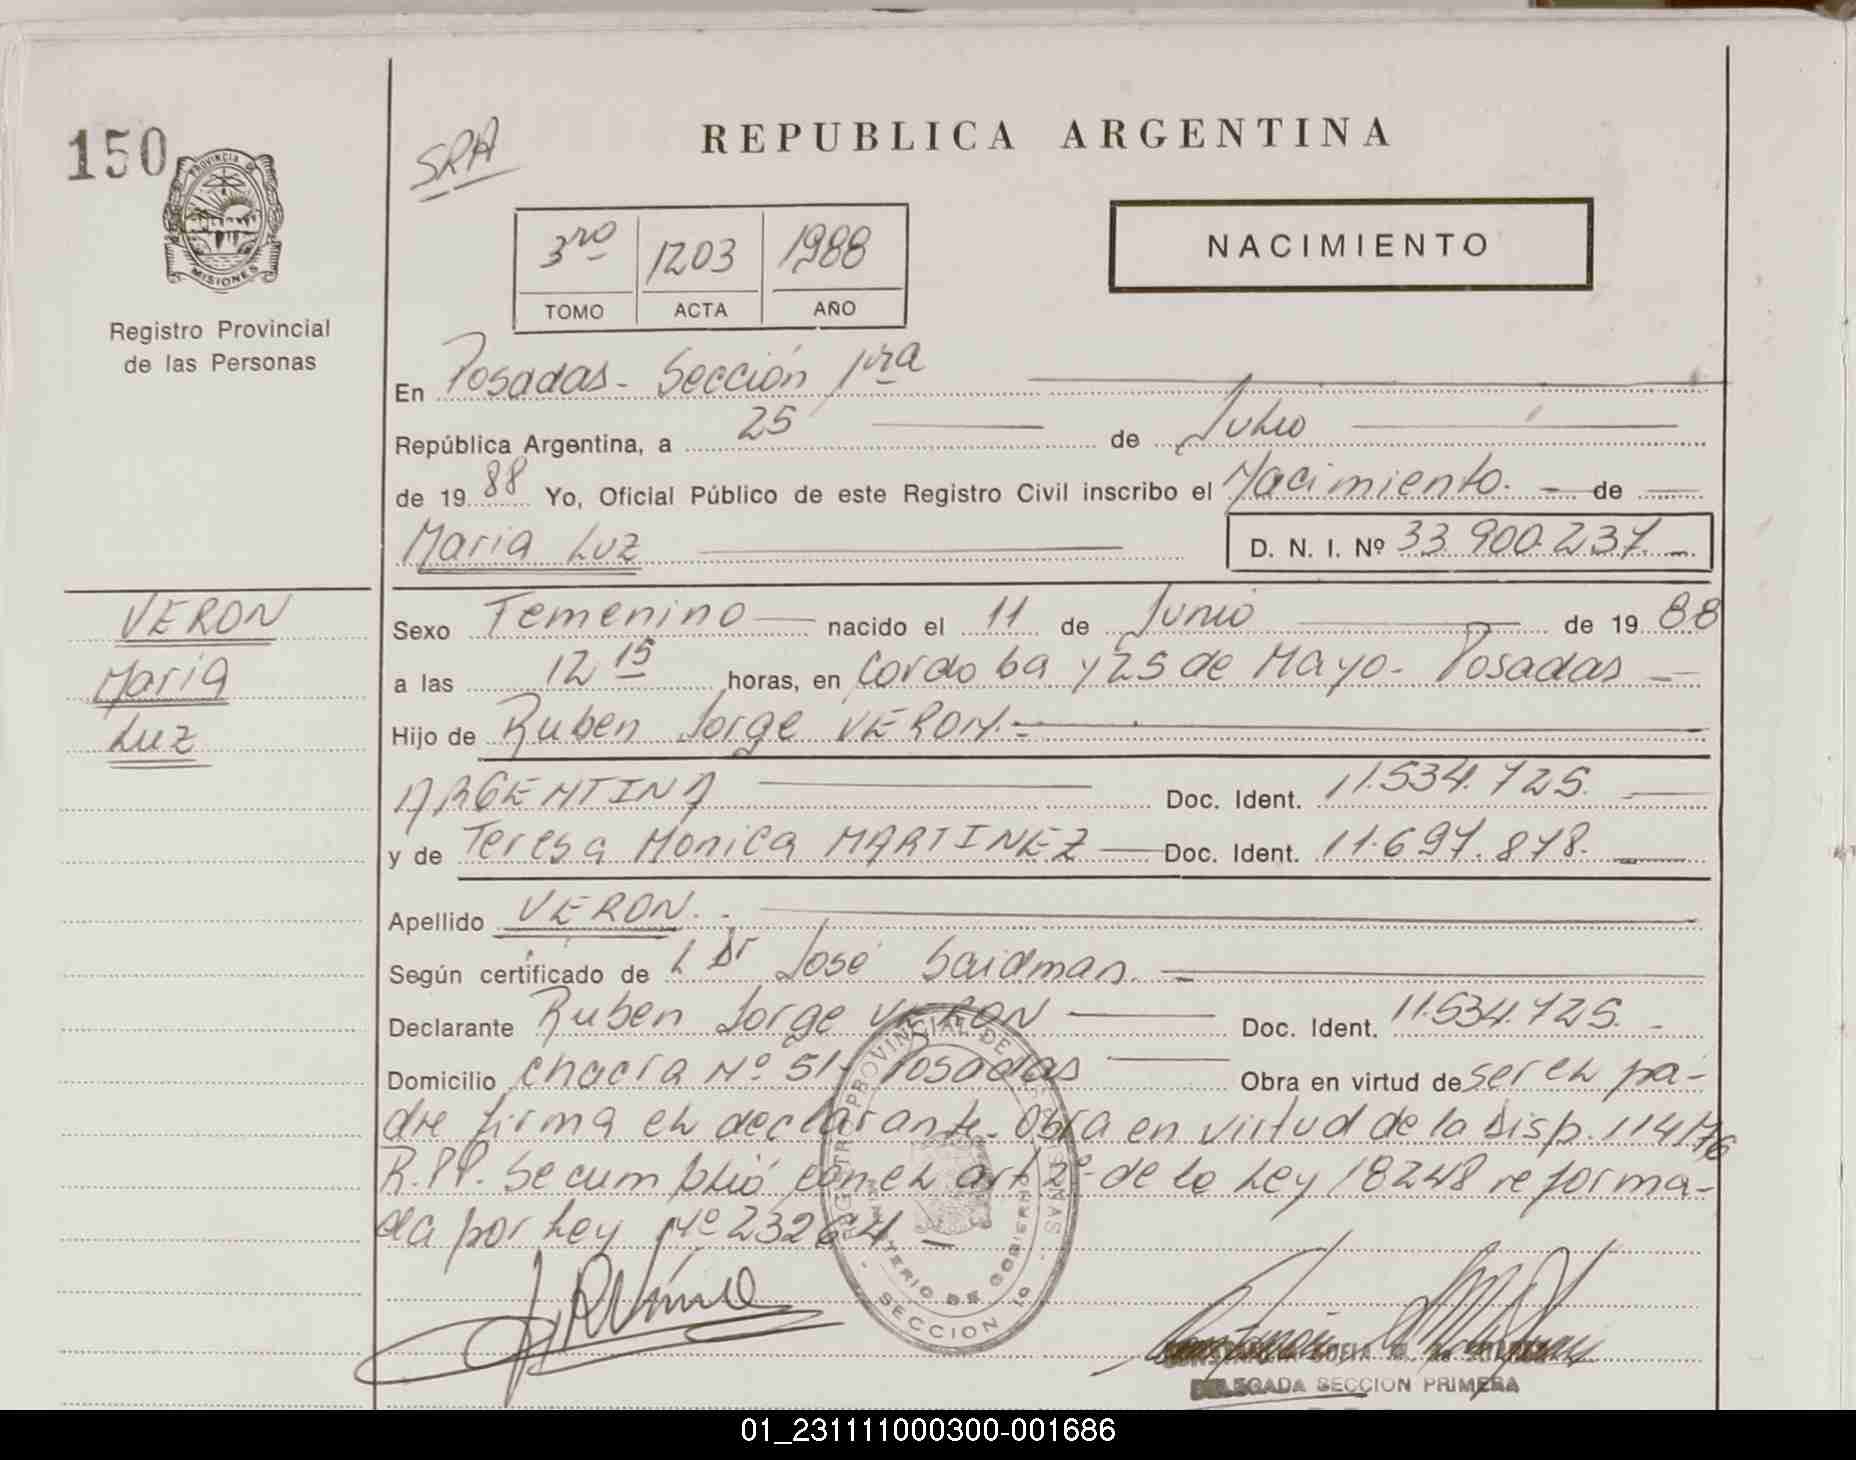 150
PROVINCIA DE
MISIONES
Registro Provincial
de las Personas
SRA
REPUBLICA ARGENTINA
3ro 1203 1988
TOMO ACTA AÑO
NACIMIENTO
En Posadas - Sección 1ra
República Argentina, a 25 de Julio
de 19 88 Yo, Oficial Público de este Registro Civil inscribo el Nacimiento. - de
Maria Luz D. N. I. Nº 33.900.237. -
VERON
Maria
Luz
Sexo Femenino nacido el 11 de Junio de 19 88
a las 12 15 horas, en Cordoba y 25 de Mayo - Posadas
Hijo de Ruben Jorge VERON. -
ARGENTINA Doc. Ident. 11.534.725.
y de Teresa Monica MARTINEZ Doc. Ident. 11.697.878.
Apellido VERON. -
Según certificado de L Dr José Saidman. -
Declarante Ruben Jorge VERON Doc. Ident. 11.534.725. -
Domicilio chacra Nº 51 - Posadas Obra en virtud de ser el pa-
dre firma el declarante. Obra en virtud de la Disp. 114/76
R.P.P. Se cumplió con el art 2º de la Ley 18248 reforma-
da por Ley Nº 23264 -
REGISTRO PROVINCIAL DE LAS PERSONAS
MINISTERIO DE GOBIERNO
SECCION
DELEGADA SECCION PRIMERA
01_231111000300-001686